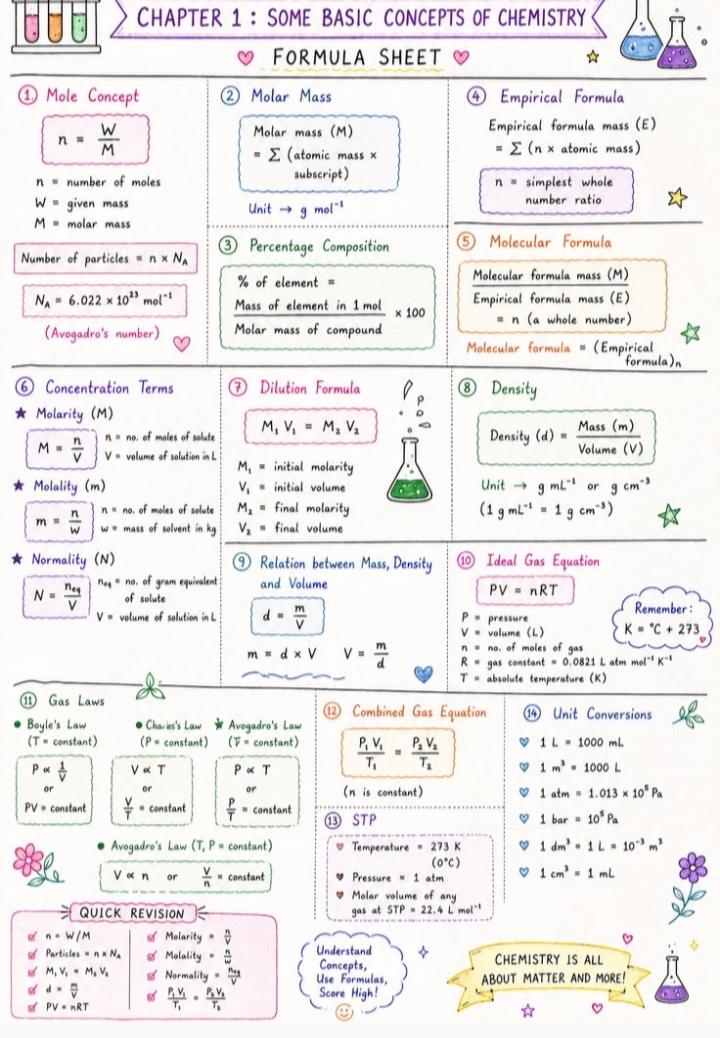 CHAPTER 1 : SOME BASIC CONCEPTS OF CHEMISTRY
FORMULA SHEET
① Mole Concept
n = W/M
n = number of moles
W = given mass
M = molar mass
Number of particles = n × N_A
N_A = 6.022 × 10²³ mol⁻¹
(Avogadro's number)
② Molar Mass
Molar mass (M)
= Σ (atomic mass ×
subscript)
Unit → g mol⁻¹
③ Percentage Composition
% of element =
Mass of element in 1 mol / Molar mass of compound × 100
④ Empirical Formula
Empirical formula mass (E)
= Σ (n × atomic mass)
n = simplest whole
number ratio
⑤ Molecular Formula
Molecular formula mass (M) / Empirical formula mass (E)
= n (a whole number)
Molecular formula = (Empirical
formula)n
⑥ Concentration Terms
★ Molarity (M)
M = n/V
n = no. of moles of solute
V = volume of solution in L
★ Molality (m)
m = n/w
n = no. of moles of solute
w = mass of solvent in kg
★ Normality (N)
N = n_eq/V
n_eq = no. of gram equivalent
of solute
V = volume of solution in L
⑦ Dilution Formula
M₁ V₁ = M₂ V₂
M₁ = initial molarity
V₁ = initial volume
M₂ = final molarity
V₂ = final volume
⑧ Density
Density (d) = Mass (m) / Volume (V)
Unit → g mL⁻¹ or g cm⁻³
(1 g mL⁻¹ = 1 g cm⁻³)
⑨ Relation between Mass, Density
and Volume
d = m/V
m = d × V V = m/d
⑩ Ideal Gas Equation
PV = nRT
P = pressure
V = volume (L)
n = no. of moles of gas
R = gas constant = 0.0821 L atm mol⁻¹ K⁻¹
T = absolute temperature (K)
Remember:
K = °C + 273
⑪ Gas Laws
● Boyle's Law
(T = constant)
P ∝ 1/V
or
PV = constant
● Law
(P = constant)
V ∝ T
or
V/T = constant
★ Avogadro's Law
( = constant)
P ∝ T
or
P/T = constant
● Avogadro's Law (T, P = constant)
V ∝ n or V/n = constant
⑫ Combined Gas Equation
P₁ V₁/T₁ = P₂ V₂/T₂
(n is constant)
⑬ STP
Temperature = 273 K
(0°C)
Pressure = 1 atm
Molar volume of any
gas at STP = 22.4 L mol⁻¹
⑭ Unit Conversions
1 L = 1000 mL
1 m³ = 1000 L
1 atm = 1.013 × 10⁵ Pa
1 bar = 10⁵ Pa
1 dm³ = 1 L = 10⁻³ m³
1 cm³ = 1 mL
QUICK REVISION
n = W/M
Particles = n × N_A
M₁ V₁ = M₂ V₂
d = m/V
PV = nRT
Molarity = n/V
Molality = n/w
Normality = n_eq/V
P₁ V₁/T₁ = P₂ V₂/T₂
Understand
Concepts,
Use Formulas,
Score High!
CHEMISTRY IS ALL
ABOUT MATTER AND MORE!